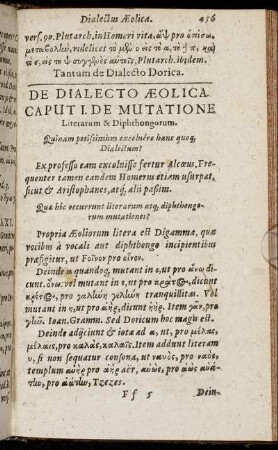 Dialectus Æolica. 456
vers. 90. Plutarch, in Homeri vita, ἂψ pro ὀπίσω,
videlicet τὸ εἰς τὸ π, καὶ
τὸ σ, εἰς τὸ ψ αὐτοῖς, Plutarch. ibidem.
Tantum de Dialecto Dorica.
DE DIALECTO ÆOLICA.
CAPUT I. DE MUTATIONE
Literarum & Diphthongorum.
Quinam potissimùm excoluére hanc quoq́;
Dialectum?
Ex professo eam excoluisse fertur Alcæus, Fre-
quenter tamen eandem Homerus etiam usurpat,
sicut & Aristophanes, atq́; alii paßim.
Quæ hîc occurrunt literarum atq́; diphthongo-
rum mutationes?
Propria Æoliorum litera est Digamma, quæ
vocibus à vocali aut diphthongo incipientibus
præfigitur, ut Fοῖνον pro οἶνον.
Deinde α quandoq́; mutant in ο, ut pro ἄνω di-
cunt. ὄνω: vel mutant in ε, ut pro κράτ⊙, dicunt
κρέτ⊙, pro γαλήνη γελήνη tranquillitas. Vel
mutant in η, ut pro ἀὴρ, dicunt ἠήρ. Item γὰρ, pro
Ioan. Gramm. Sed Doricum hoc magis est.
Deinde adjiciunt & iota ad α, ut, pro μέλας,
μέλαις, pro καλὰς, καλαῖς. Item addunt literam
υ, si non sequatur consona, ut ναυὸς, pro ναὸς,
templum αὐὴρ pro ἀὴρ aër, αὐὼς, pro ἀὼς
pro Tzezes.
F f 5 Dein-